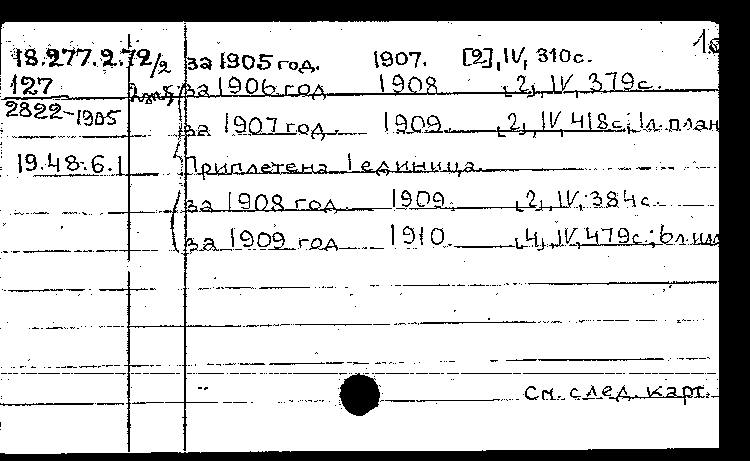 18.277.2.72/2 за 1905 год. 1907. [2], IV, 310с.
127 2 экз за 1906 год 1908 [2], IV, 379с.
2822-1905
за 1907 год 1909. [2], IV, 418с; 1л. план
19.48.6.1 Приплетена 1 единица.
за 1908 год 1909. [2], IV, 384с.
за 1909 год 1910. [4], IV, 479с.; 6л.
См. след. карт.